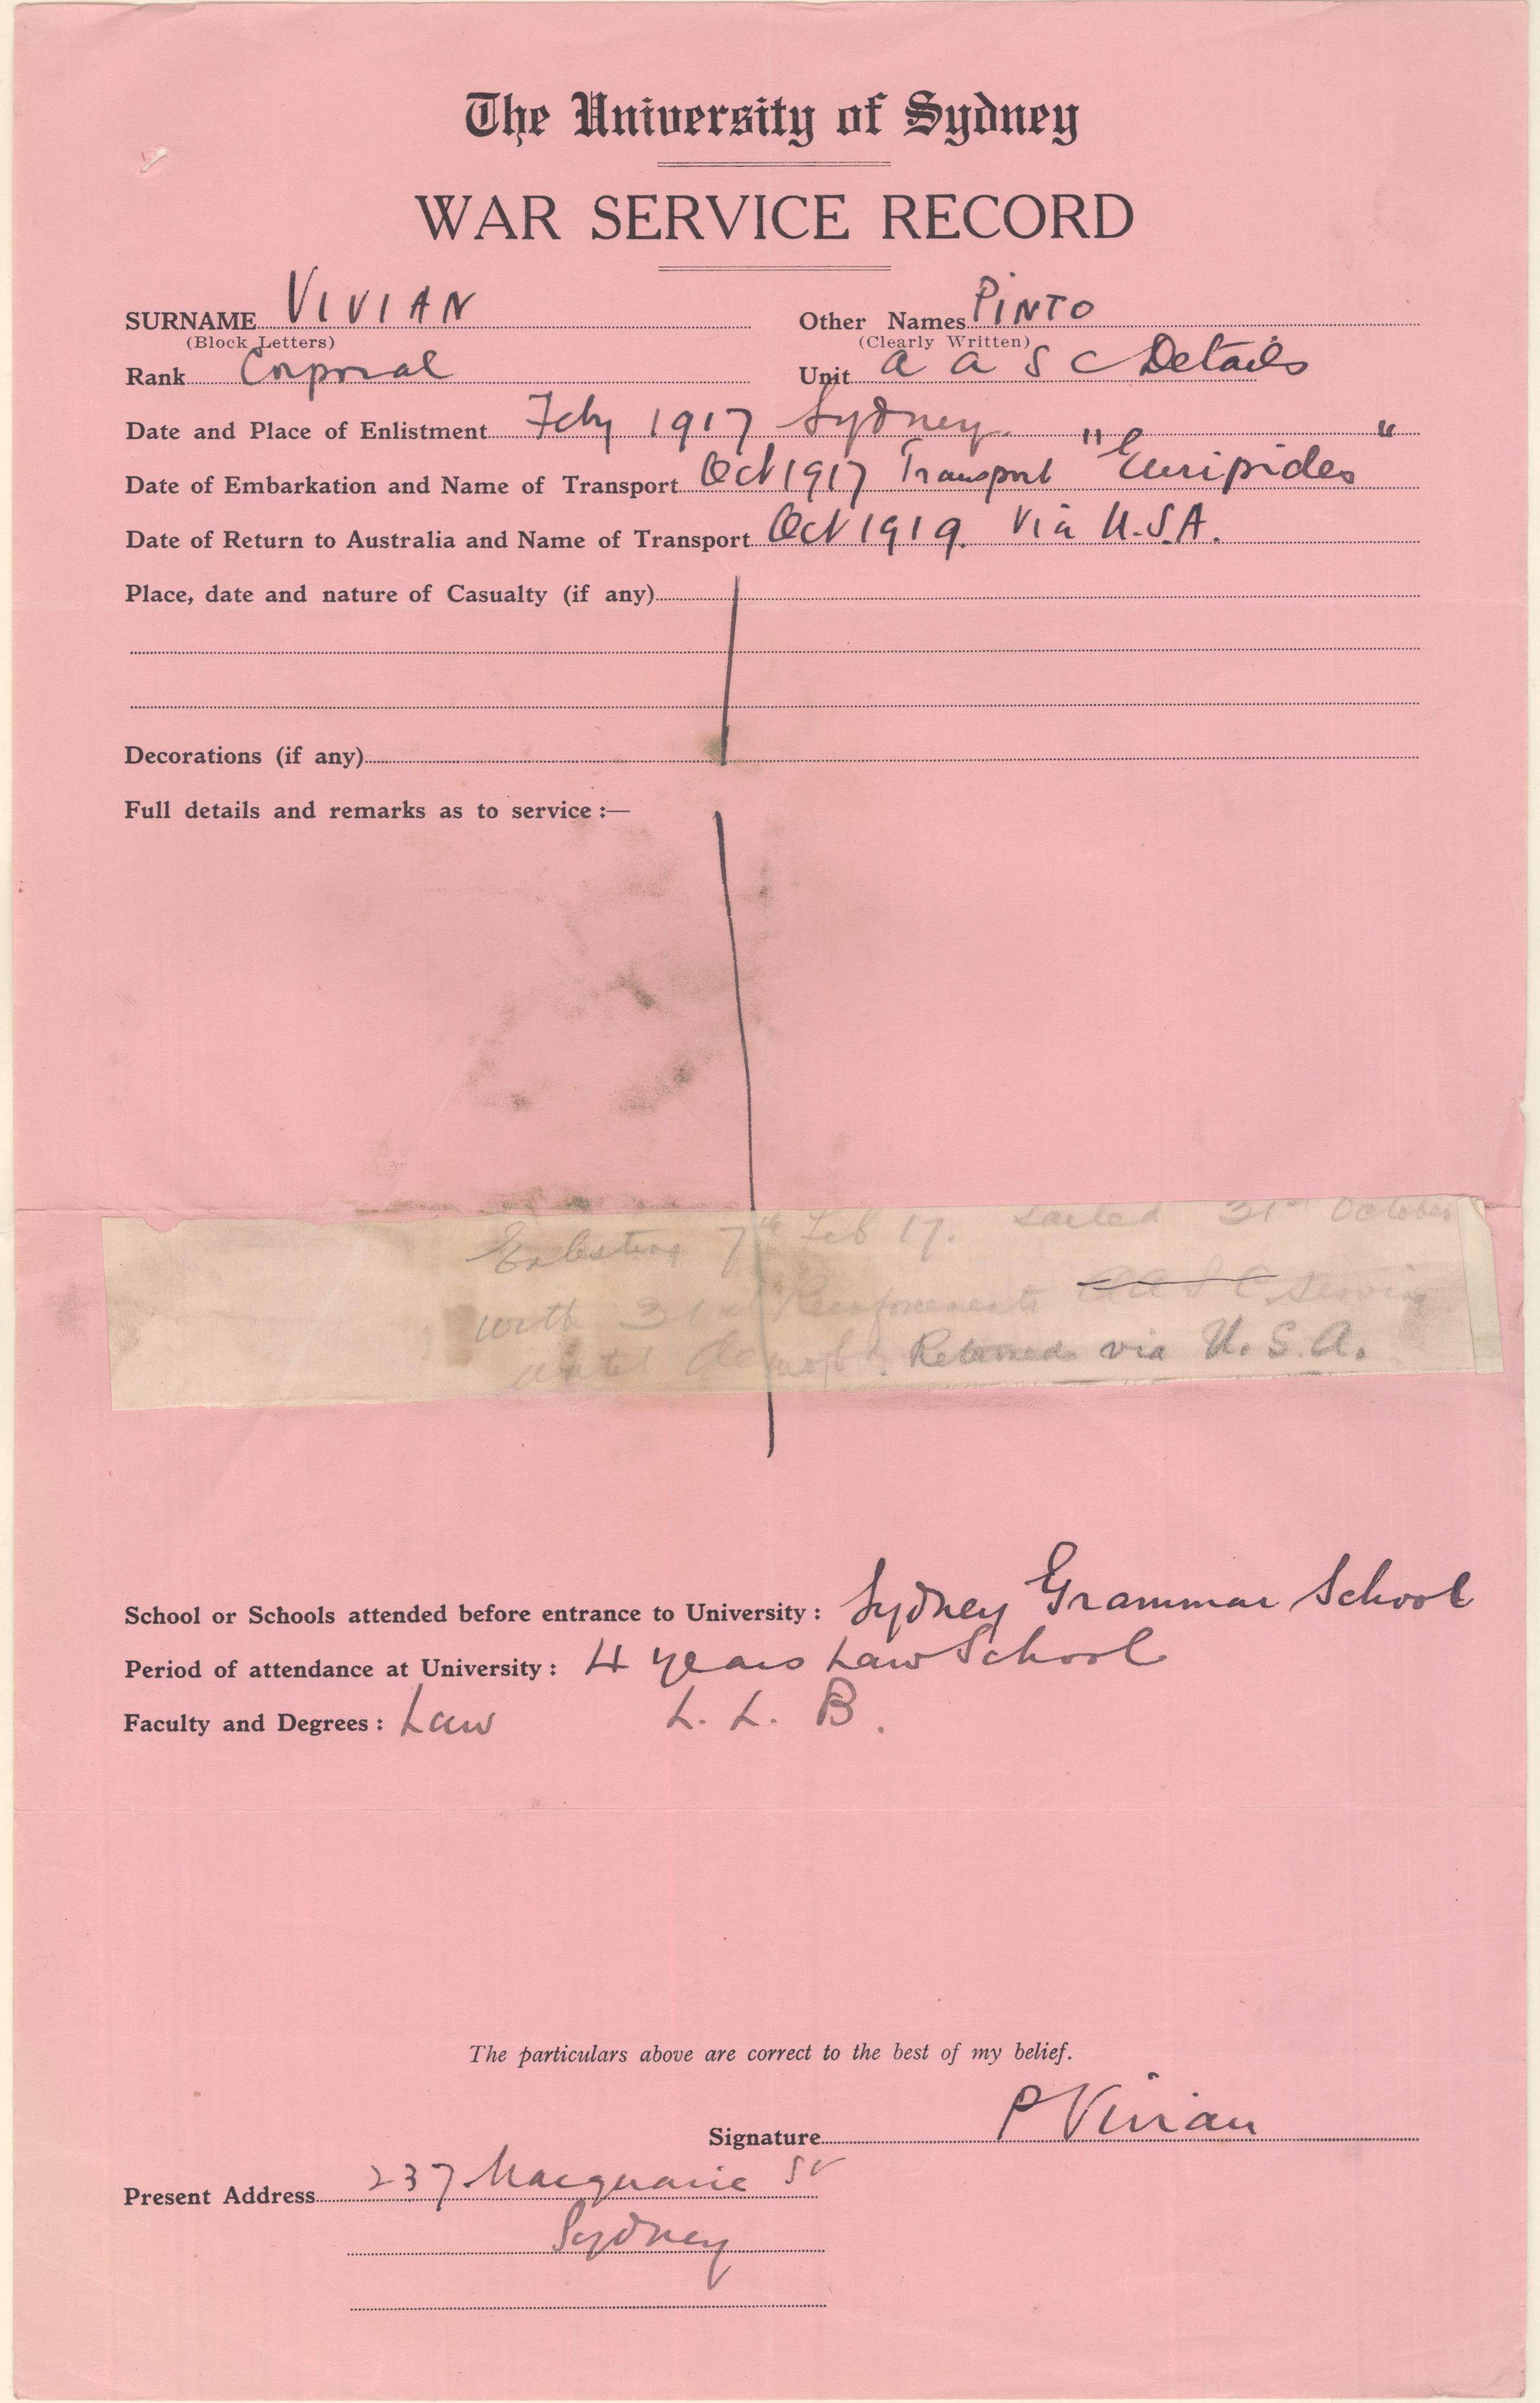 The University of Sydney
WAR SERVICE RECORD
SURNAME VIVIAN Other Names PINTO
(Block Letters) (Clearly Written)
Rank Corporal Unit A A S C Details
Date and Place of Enlistment Feby 1917 Sydney.
Date of Embarkation and Name of Transport Oct 1917 Transport "Euripides"
Date of Return to Australia and Name of Transport Oct 1919. Via U.S.A.
Place, date and nature of Casualty (if any)
Decorations (if any)
Full details and remarks as to service :—
7th Feb 17. Sailed 31st October
with 31st Reinforcements AASC. Serving
until demob. Returned via U.S.A.
School or Schools attended before entrance to University : Sydney Grammar School
Period of attendance at University : 4 years Law School
Faculty and Degrees : Law L. L. B.
The particulars above are correct to the best of my belief.
Signature P Vivian
Present Address 237 Macquarie St
Sydney